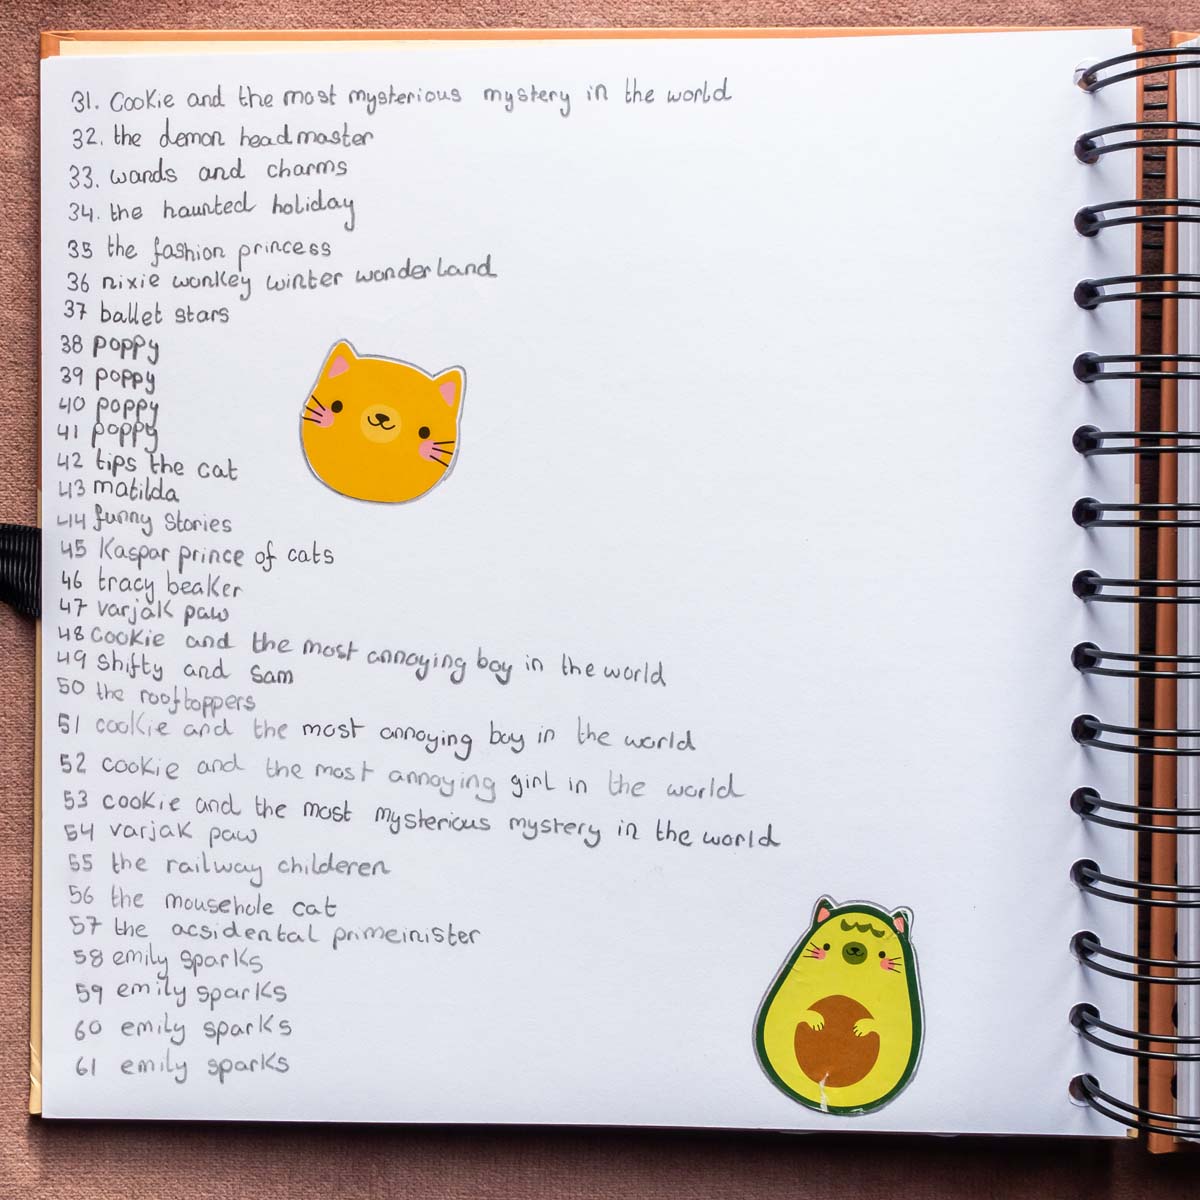 31. Cookie and the most mysterious mystery in the world
32. the demon headmaster
33. wands and charms
34. the haunted holiday
35 the fashion princess
36 nixie wonkey winter wonderland
37 ballet stars
38 poppy
39 poppy
40 poppy
41 poppy
42 tips the cat
43 matilda
44 funny stories
45 Kaspar prince of cats
46 tracy beaker
47 varjak paw
48 cookie and the most annoying boy in the world
49 shifty and sam
50 the rooftoppers
51 cookie and the most annoying boy in the world
52 cookie and the most annoying girl in the world
53 cookie and the most mysterious mystery in the world
54 varjak paw
55 the railway childeren
56 the mousehole cat
57 the acsidental primeinister
58 emily sparks
59 emily sparks
60 emily sparks
61 emily sparks